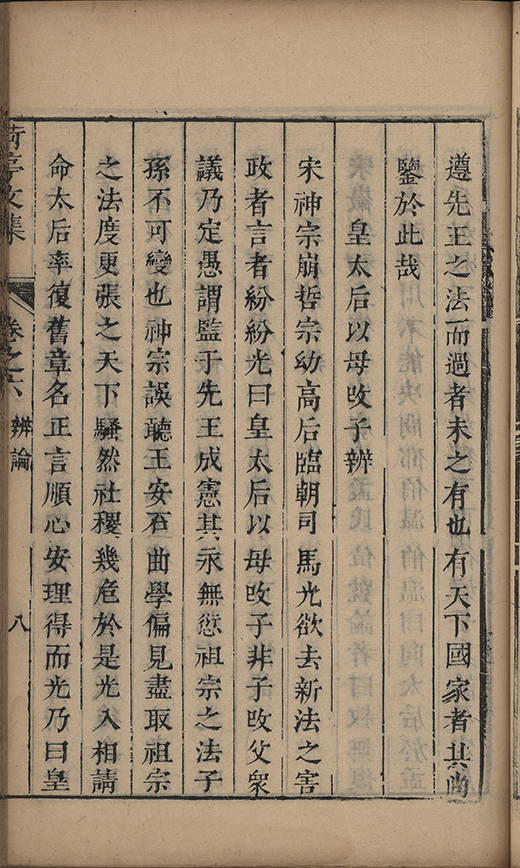 遵先王之法而過者未之有也有天下國家者其尚
鑒於此哉
皇太后以母攺子辨
宋神宗崩哲宗幼高后臨朝司馬光欲去新法之害
政者言者紛紛光曰皇太后以母攺子非子攺父衆
議乃定愚謂監于先王成憲其永無愆祖宗之法子
孫不可變也神宗誤聽王安石曲學偏見盡取祖宗
之法度更張之天下騷然社稷幾危於是光入相請
命太后率復舊章名正言順心安理得而光乃曰皇
荷亭文集
卷之六
辨論
八